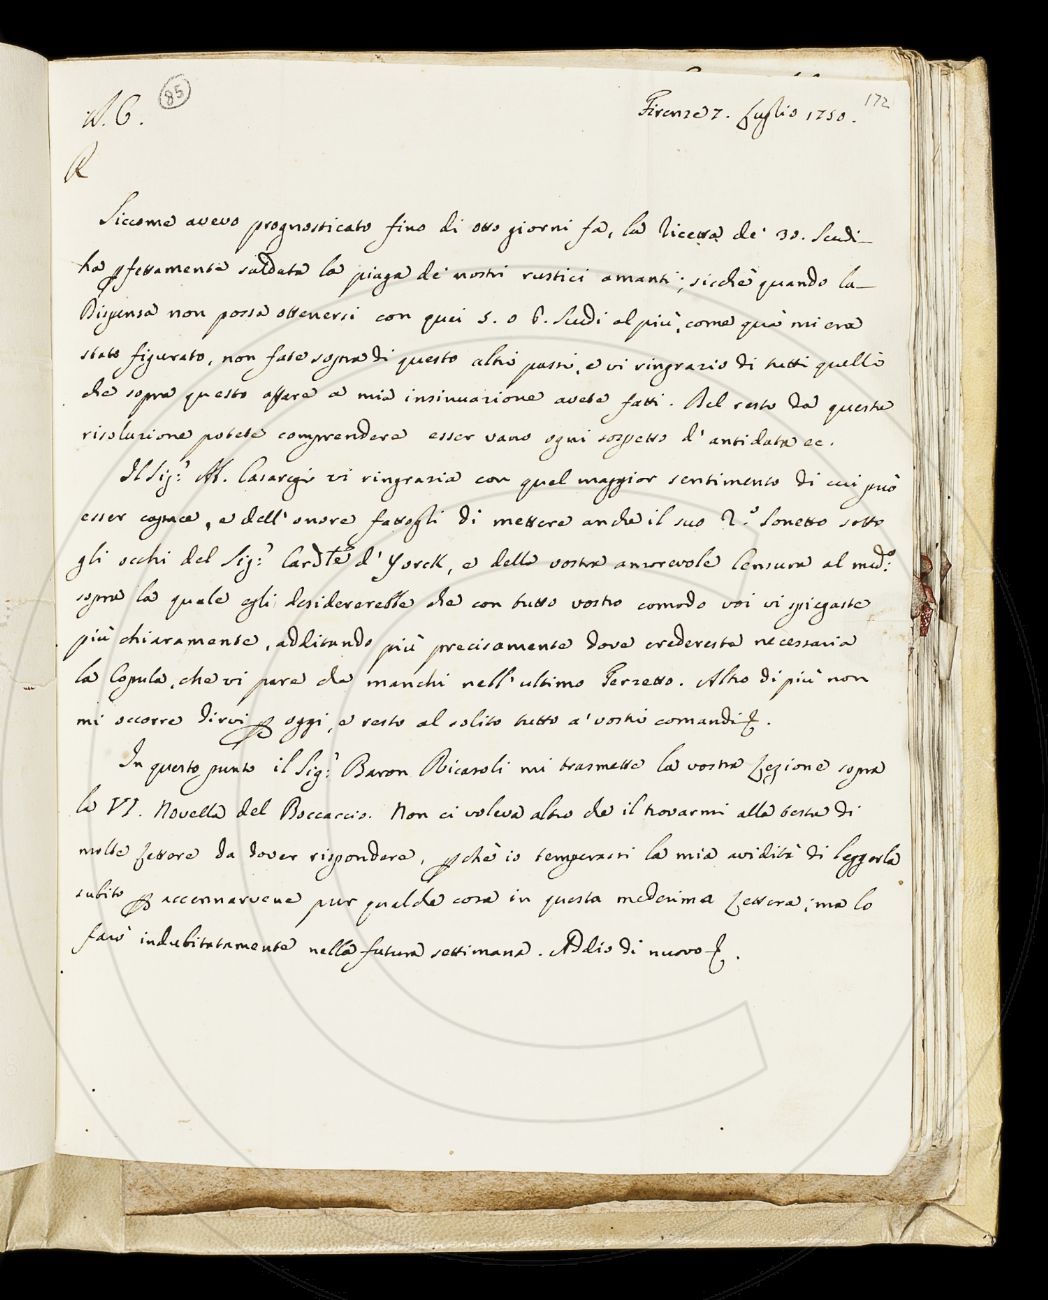 85
172
A. C.
Firenze 7. Luglio 1750.
R
Siccome avevo prognosticato fino di otto giorni fa, la ricetta de' 30. Scudi
ha pfettamente saldata la piaga de' nostri rustici amanti; sicchè quando la
Dispensa non possa ottenersi con quei 5. o 6. Scudi al più, come quà mi era
stato figurato, non fate sopra di questo altri passi, e vi ringrazio di tutti quelli
che sopra questo affare a mia insinuazione avete fatti. Del resto da questa
risoluzione potete comprendere esser vano ogni sospetto d'antidata ec.
Il Sig.r Ab. Casaregi vi ringrazia con quel maggior sentimento di cui può
esser capace, e dell'onore fattogli di mettere anche il suo 2.o Sonetto sotto
gli occhi del Sig.r Card.le d'Yorck, e della vostra amorevole Censura al med.o
sopra la quale egli desidererebbe che con tutto vostro comodo voi vi spiegaste
più chiaramente, additando più precisamente dove credereste necessaria
la Copula, che vi pare che manchi nell'ultimo Terzetto. Altro di più non
mi occorre dirvi p oggi, e resto al solito tutto a' vostri comandi
In questo punto il Sig.r Baron Ricasoli mi trasmette la vostra Lezione sopra
la VI. Novella del Boccaccio. Non ci voleva altro che il trovarmi alla testa di
molte Lettere da dover rispondere, pchè io temperassi la mia avidità di leggerla
subito p accennarvene pur qualche cosa in questa medesima Lettera; ma lo
farò indubitatamente nella futura settimana. Addio di nuovo